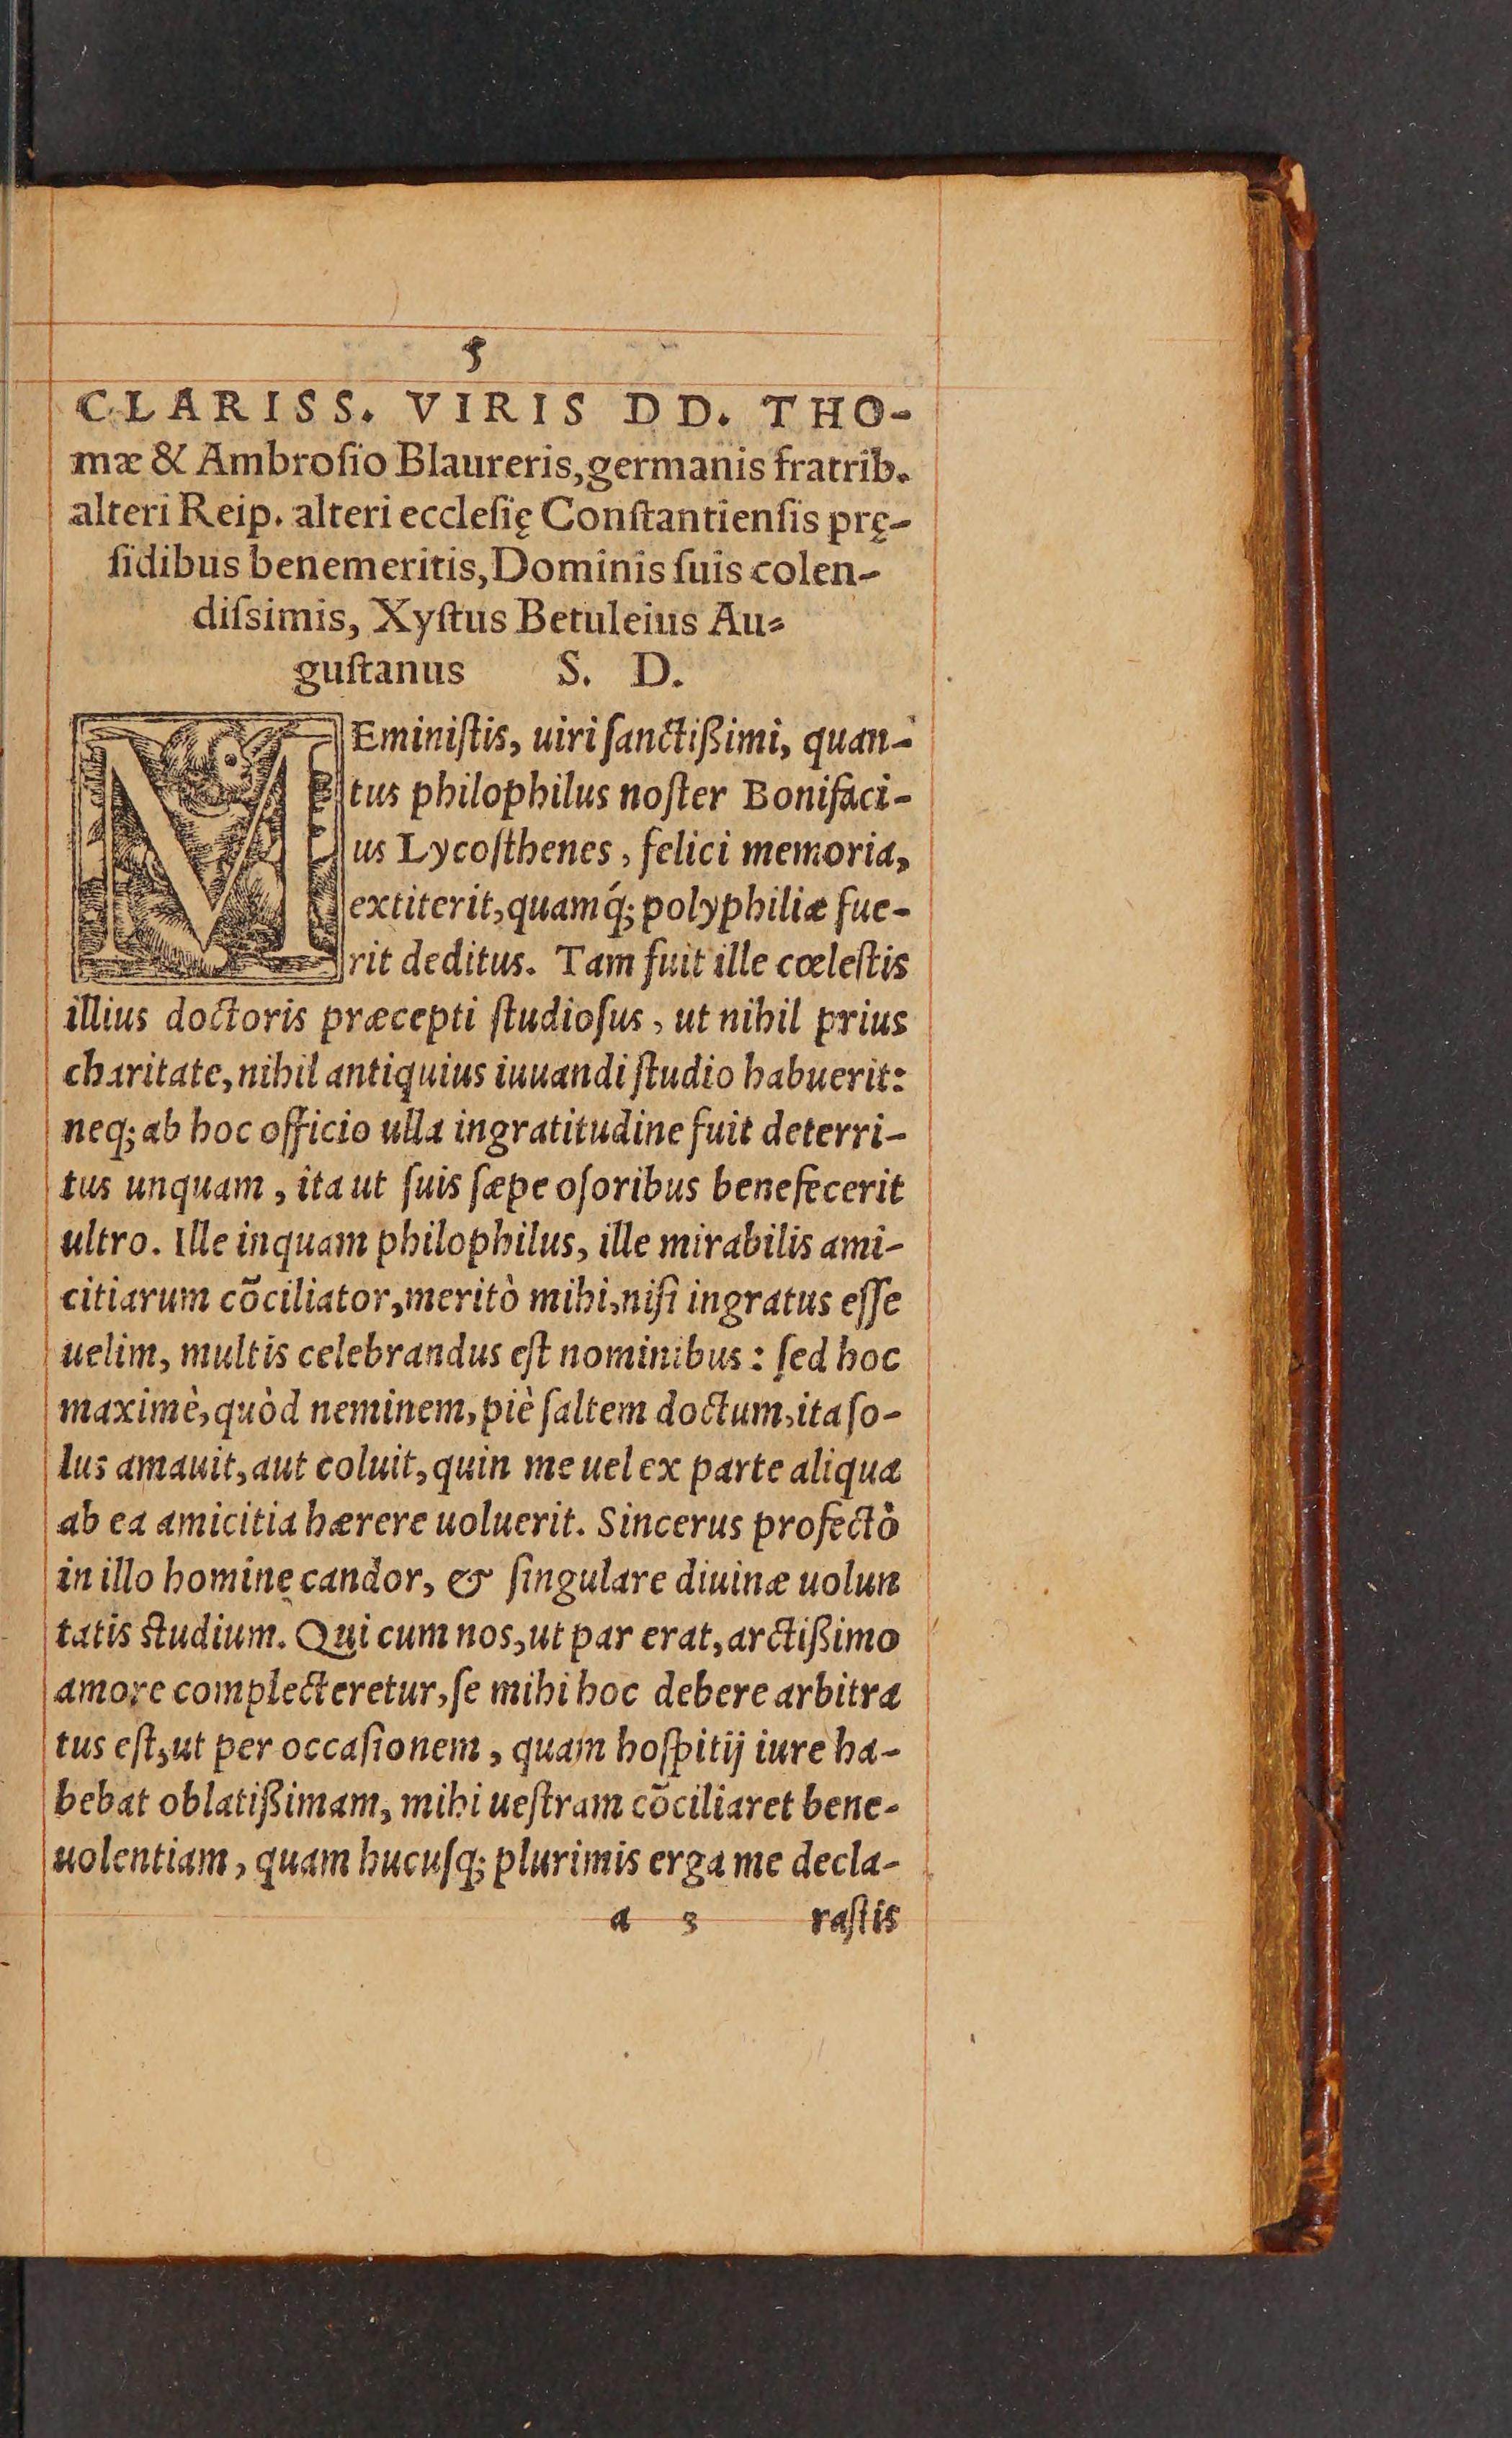 5
CLARISS. VIRIS DD. THO-
mæ & Ambroſio Blaureris, germanis fratrib.
alteri Reip. alteri eccleſię Conſtantienſis prę-
ſidibus benemeritis, Dominis ſuis colen-
diſsimis, Xyſtus Betuleius Au-
guſtanus S. D.
MEminiſtis, uiri ſanctißimi, quan-
tus philophilus noſter Bonifaci-
us Lycoſthenes, felici memoria,
extiterit, quamq́; polyphiliæ fue-
rit deditus. Tam fuit ille cœleſtis
illius doctoris præcepti ſtudioſus, ut nihil prius
charitate, nihil antiquius iuuandi ſtudio habuerit:
neq; ab hoc officio ulla ingratitudine fuit deterri-
tus unquam, ita ut ſuis ſæpe oſoribus benefecerit
ultro. Ille inquam philophilus, ille mirabilis ami-
citiarum cõciliator, meritò mihi, niſi ingratus eſſe
uelim, multis celebrandus eſt nominibus: ſed hoc
maximè, quòd neminem, piè ſaltem doctum, ita ſo-
lus amauit, aut coluit, quin me uel ex parte aliqua
ab ea amicitia hærere uoluerit. Sincerus profectò
in illo homine candor, & ſingulare diuinæ uolun
tatis ſtudium. Qui cum nos, ut par erat, arctißimo
amore complecteretur, ſe mihi hoc debere arbitra
tus eſt, ut per occaſionem, quam hoſpitij iure ha-
bebat oblatißimam, mihi ueſtram cõciliaret bene-
uolentiam, quam hucuſq; plurimis erga me decla-
a 3 raſtis